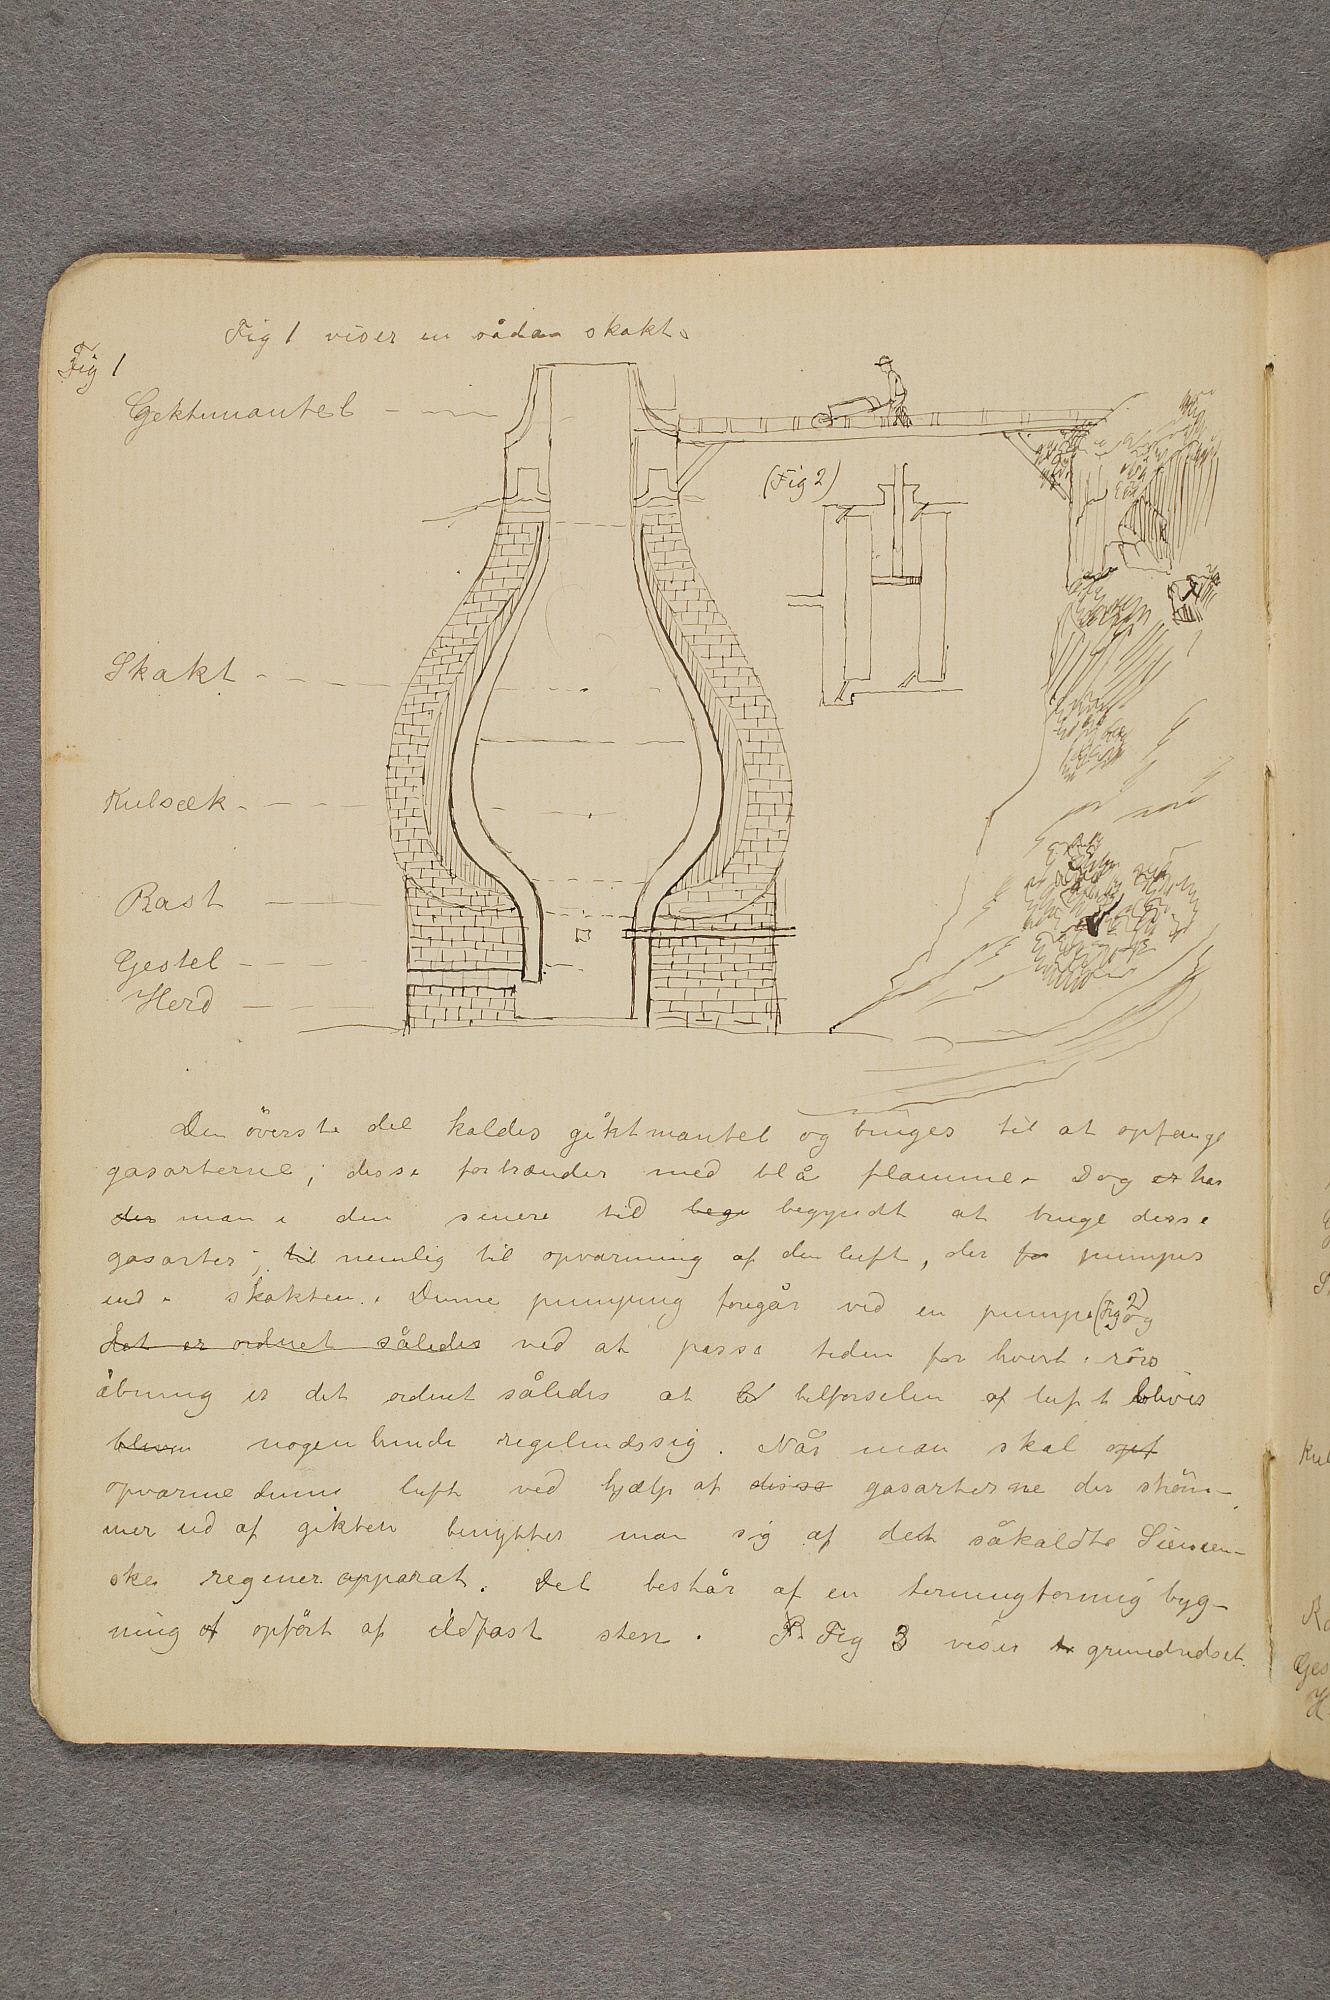 Fig 1 viser en sådan skakt.
Fig 1
Gektmantel
(Fig 2)
Skakt
Kulsæk
Rast
Gestel
Herd
Den överste del kaldes giktmantel og bruges til at opfange
gasarterne; disse forbrænder med blå flamme. Dog er har
der man i den senere tid beg begyndt at bruge disse
gasarter; til nemlig til opvarming af den luft, der for pumpes
ind i skakten. Denne pumping foregår ved en pumpe (Fig 2) og
det er ordnet således ved at passe tiden for hvert rörs
åbning er det ordnet således at tilförselen af luft blives
bliven nogenlunde regelmdssig. Når man skal opf
opvarme denne luft ved hjælp af disse gasarterne der ström-
mer ud af gikten benytter man sig af det såkaldte Siemen-
ske regener apparat. Det består af en terningformig byg-
ning af opfört af ildfast sten. Fig 3 viser grundridset.
Kul
Ges
H